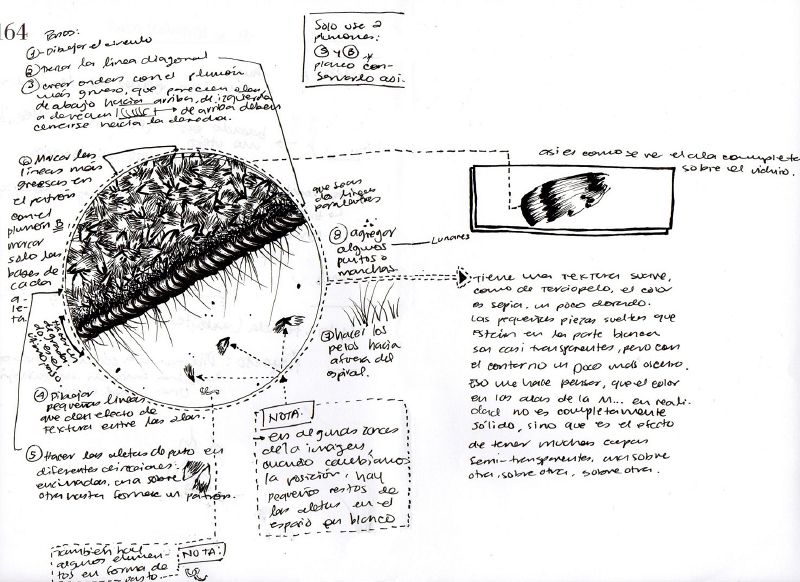 164
Pasos:
① Dibujar el círculo
② Trazar la línea diagonal
③ crear ondas con el plumón
más grueso, que parecieran olas,
de abajo hacia arriba, de izquierda
a derecha → de arriba deben
hacia la derecha.
Solo use 2
plumones:
③ y ⑧
conservarlo así.
⑥ Marcar las
líneas más
gruesas en
el patrón
con el
plumón B
marcar
solo las
bases de
cada
aleta.
que sean
dos líneas
paralelas
⑧ agregar
algunos
puntos o
manchas
Lunares
así es como se ve el ala completa
sobre el vidrio.
Tiene una textura suave,
como de terciopelo, el color
es sepia, un poco dorado.
Las pequeñas piezas sueltas que
están en la parte blanca
son casi transparentes, pero con
el contorno un poco más oscuro.
Eso me hace pensar, que el color
en las alas de la M... en reali-
dad no es completamente
sólido, sino que es el efecto
de tener muchas capas
semi-transparentes, una sobre
otra, sobre otra, sobre otra.
⑦ hacer los
pelos hacia
afuera del
espiral.
④ Dibujar
pequeñas líneas
que den efecto de
textura entre las olas.
⑤ Hacer las aletas de pato en
diferentes direcciones
encimadas, una sobre
otra hasta formar un patrón.
NOTA:
en algunas zonas
de la imagen,
cuando cambiamos
la posición, hay
pequeños restos de
las aletas en el
espacio en blanco
También hay
algunos elemen-
tos en forma de
NOTA: